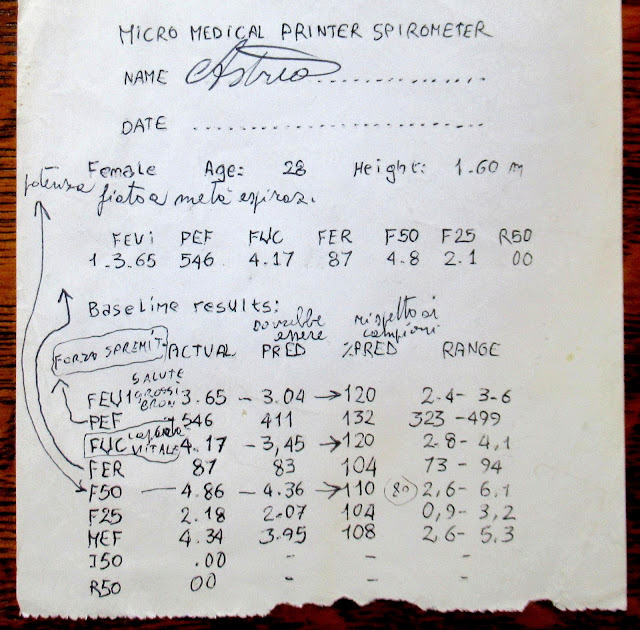 MICRO MEDICAL PRINTER SPIROMETER
NAME Astrea ................
DATE ................................
Female Age: 28 Height: 1.60 m
potenza fiato a metà espiraz.
FEV1 PEF FVC FER F50 F25 R50
1.3.65 546 4.17 87 4.8 2.1 00
Baseline results:
dovrebbe essere rispetto ai campioni
FORZA SPREMIT. ACTUAL PRED %PRED RANGE
SALUTE GROSSI BRON
FEV1 3.65 – 3.04 → 120 2.4 - 3.6
PEF 546 411 132 323 - 499
capacità VITALE
FVC 4.17 – 3,45 → 120 2.8 - 4,1
FER 87 83 104 73 - 94
F50 — 4.86 – 4.36 → 110 80 2,6 - 6.1
F25 2.18 2.07 104 0,9 - 3,2
MEF 4.34 3.95 108 2,6 - 5.3
I50 .00 - - -
R50 00 - - -